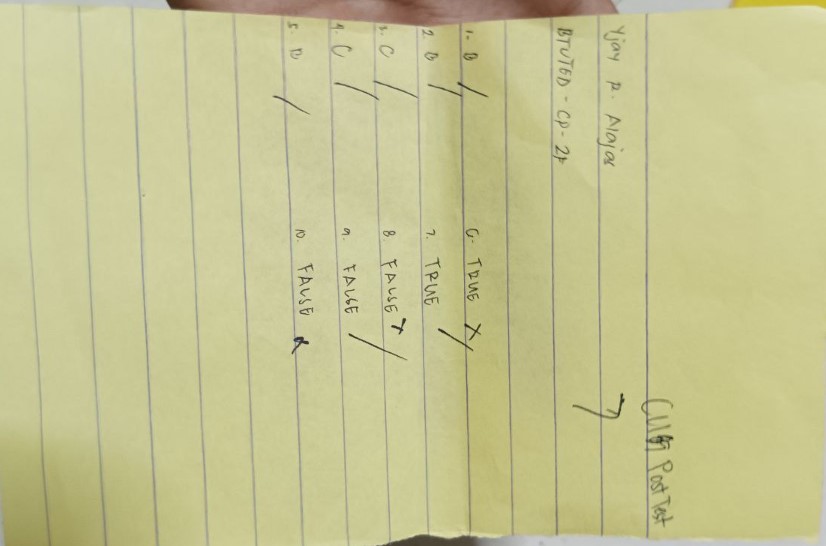 Post Test
Yjay R. Alajas
7
BTVTED - CP - 2F
1. B /
2. B /
3. C /
4. C /
5. B /
6. TRUE X
7. TRUE /
8. FALSE X
9. FALSE /
10. FALSE X